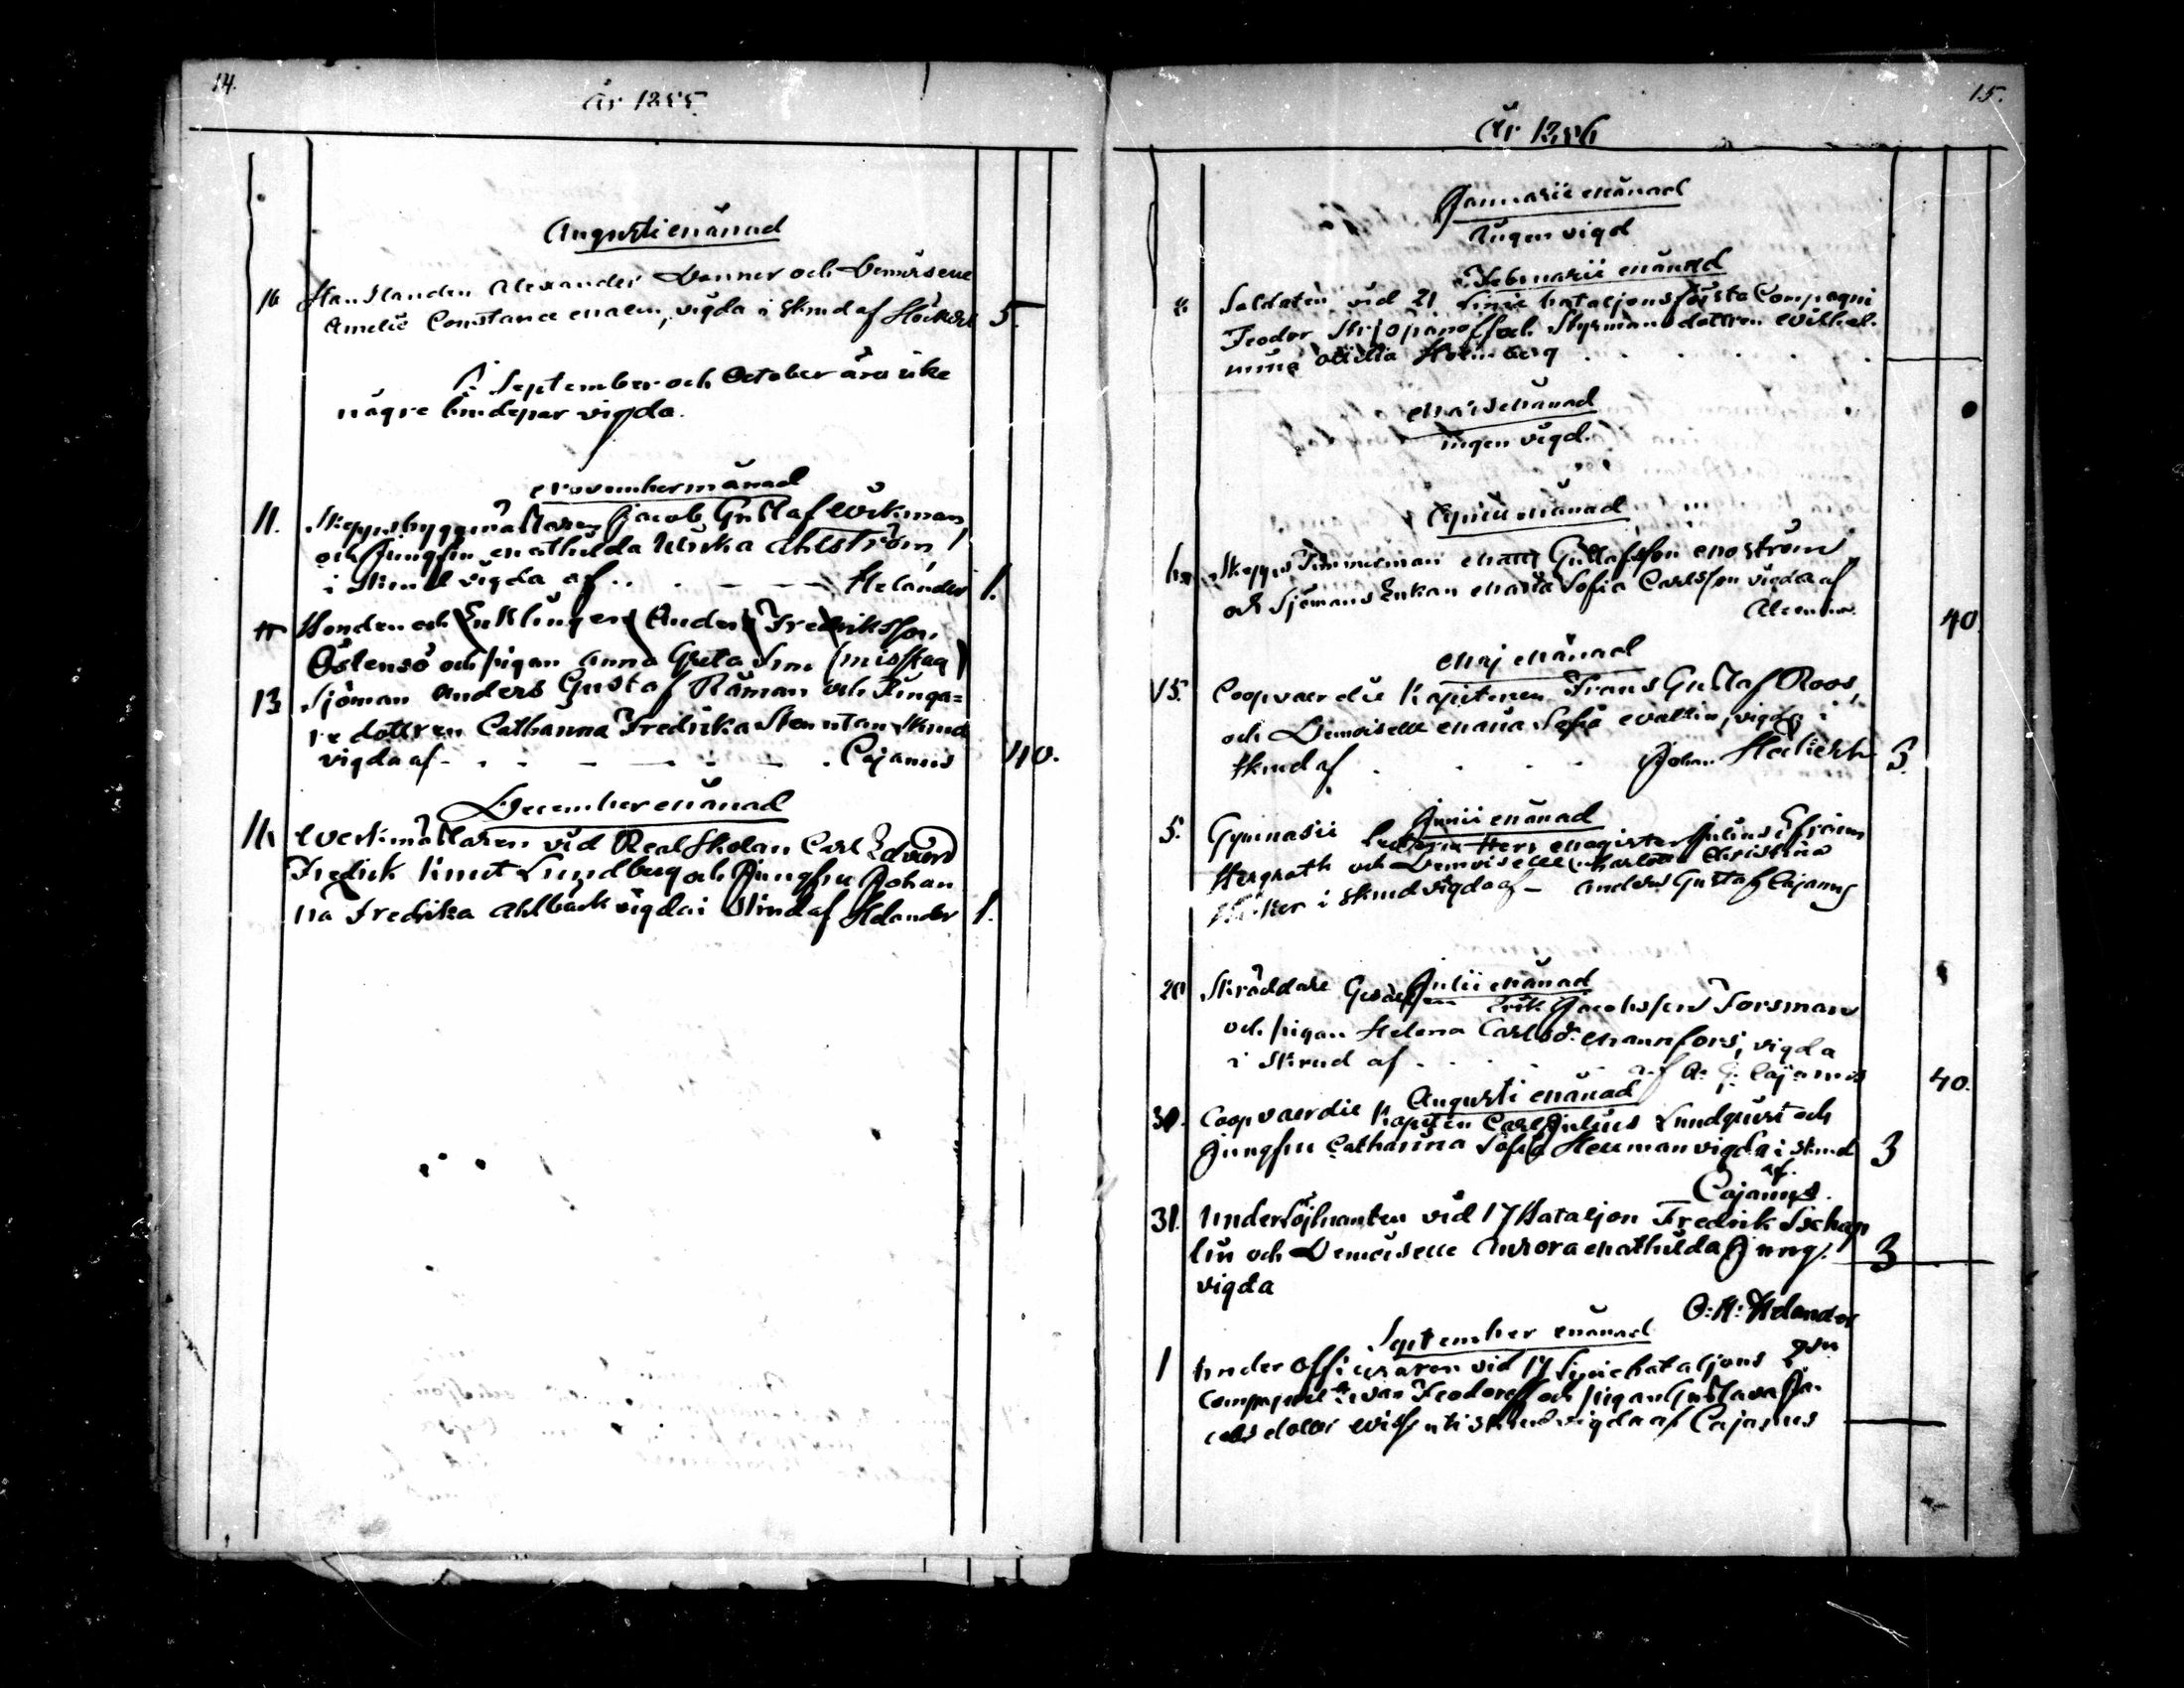 14.
År 1855.
Augusti Månad
16 Handlanden Alexander Donner och Demoiselle
Amelie Constance Malm, vigda i skrud af Höckert 5.
I September och October äro icke
några brudepar vigda.
November månad
11. Skeppsbyggmästaren Jacob Gustaf Wikman
och Jungfru Mathilda Ulrika Ahlström,
i skrud vigda af . . — — — Helander 1.
Bonden och Enklingen Anders Fredriksson
Östensö och pigan Anna Greta Simo (misskag)
13 Sjöman Anders Gustaf Råman och Ringa=
re dottren Catharina Fredrika Sten utan skrud
vigda af - . . — — . — . Cajanus 40.
December Månad
16 Werkmästaren vid Real Skolan Carl Edvard
Fredrik Knut Lundberg och Jungfru Johan
na Fredrika Ahlbäck vigda i skrud af Helander 1.
15.
År 1856
Januarii Månad
Ingen vigd
Februarii Månad
Soldaten vid 21 Linie bataljons första Compagni
Feodor och Styrmans dottren Wilhel-
mina Otilia Holmberg . . . . . .
Mars Månad
ingen vigd.
April Månad
Skepps Timmerman Matts Gustafsson Moström
och Sjömans Enkan Maria Sofia Carlsson vigda af
40.
Maj Månad
15. Coopvaerdie Kapitenen Frans Gustaf Roos,
och Demoiselle Maria Sofia Wallin, vigda i
skrud af . . . . Johan 3.
Junii Månad
5. Gymnasii Lectorn Herr Magister Julius Efraim
Bergroth och Demoiselle Charlotta Christina
i skrud vigda af — Anders Gustaf Cajanus
Julii Månad
20 Skräddare Gesällen Erik Jacobsson Forsman
och pigan Helena Carlsdr. Mannfors, vigda
i skrud af . . . . af A. G. Cajanus 40.
Augusti Månad
30. Coopvaerdie Kapiten Carl Julius Lundqvist och
Jungfru Catharina Sofia Herman vigda i skrud 3
af.
Cajanus.
31. Underlöjtnanten vid 17 Bataljon Fredrik Tschap
lin och Demoiselle Aurora Mathilda Jung. 3
vigda
O: H: Helander
September Månad
1 Under Officeraren vid 17 Liniebataljons 2dra
Compagnie Iwan Feodoroff och pigan Gustava Ja-
cobs dotter vigda af Cajanus